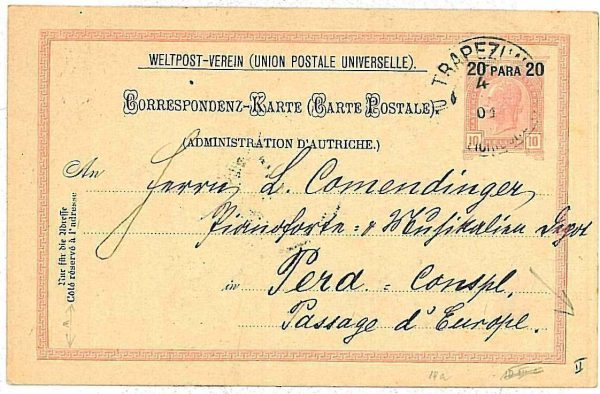 WELTPOST-VEREIN (UNION POSTALE UNIVERSELLE).
TRAPEZUNT
20 PARA 20
4
Correspondenz-Karte (Carte Postale)
(ADMINISTRATION D'AUTRICHE.)
10 10
An Herrn L. Comendinger
Pianoforte- & Musikalien Depot
in Pera - Conspl.
Passage d'Europe.
Nur für die Adresse
Côté réservé à l'adresse
14a
II